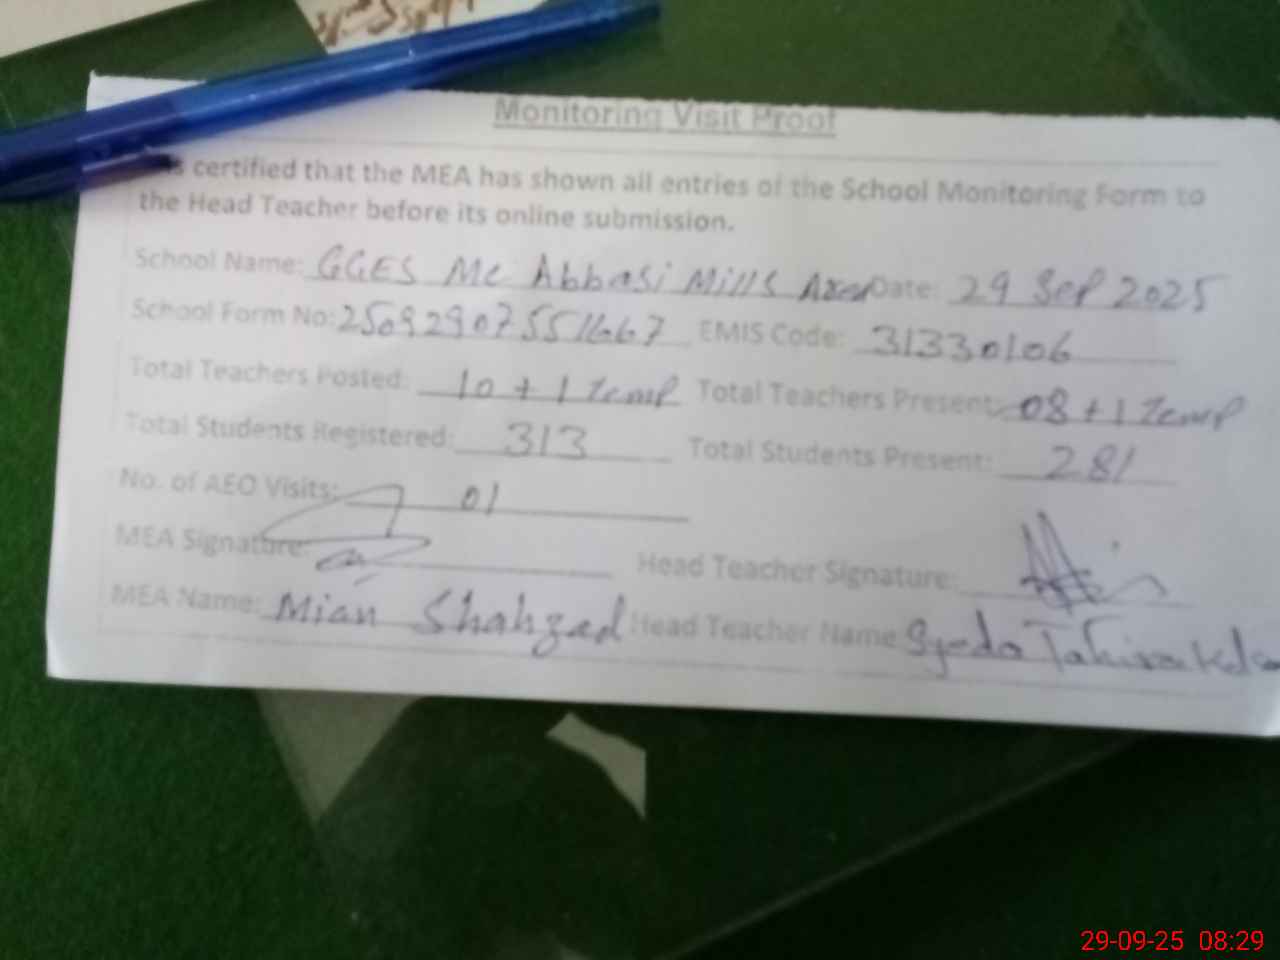 Monitoring Visit Proof
is certified that the MEA has shown all entries of the School Monitoring Form to
the Head Teacher before its online submission.
School Name: GGES MC Abbasi Mills Date: 29 Sep 2025
School Form No: 2509290755 EMIS Code: 31330106
Total Teachers Posted: 10 + 1 Temp Total Teachers Present: 08 + 1 Temp
Total Students Registered: 313 Total Students Present: 281
No. of AEO Visits: 01
MEA Signature: Head Teacher Signature:
MEA Name: Mian Shahzad Head Teacher Name Syeda Tahira
29-09-25 08:29